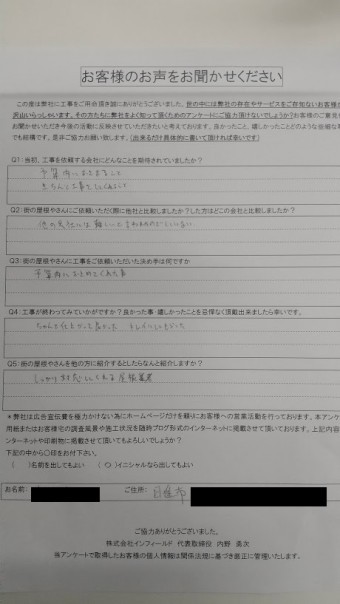 お客様のお声をお聞かせください
この度は弊社に工事をご用命頂き誠にありがとうございました。世の中には弊社の存在やサービスをご存知ないお客様が
沢山いらっしゃいます。その方たちに弊社をよく知って頂くためのアンケートにご協力頂けないでしょうか?お客様のご意見を
お聞かせいただき今後の活動に反映させていただきたいと考えております。良かったこと、嬉しかったことどのような些細な事
でも結構です。是非ご協力お願い致します。(出来るだけ具体的に書いて頂ければ幸いです)
Q1:当初、工事を依頼する会社にどんなことを期待されていましたか?
予算内に
きちんと工事をしてくれること
Q2:街の屋根やさんにご依頼いただく際に他社と比較しましたか?した方はどこの会社と比較しましたか?
Q3:街の屋根やさんに工事をご依頼いただいた決め手は何ですか
予算内に
Q4:工事が終わってみていかがですか?良かった事・嬉しかったことを目惇なく頂戴出来ましたら幸いです。
ちゃんと仕上がって良かった
Q5:街の屋根やさんを他の方に紹介するとしたらなんと紹介しますか?
しっかり対応してくれる屋根業者
*弊社は広告宣伝費を極力かけない為にホームページだけを頼りにお客様への営業活動を行っております。本アンケ
用紙またはお客様宅の調査風景や施工状況を随時ブログ形式のインターネットに掲載させて頂いております。上記内容
ンターネットや印刷物に掲載させて頂いてもよろしいでしょうか?
下記の中から〇印をお付下さい。
( )名前を出してもよい (○)イニシャルなら出してもよい
お名前: ご住所:
ご協力ありがとうございました。
株式会社インフィールド 代表取締役 内野 勇次
当アンケートで取得したお客様の個人情報は関係法規に基づき厳正に管理いたします。